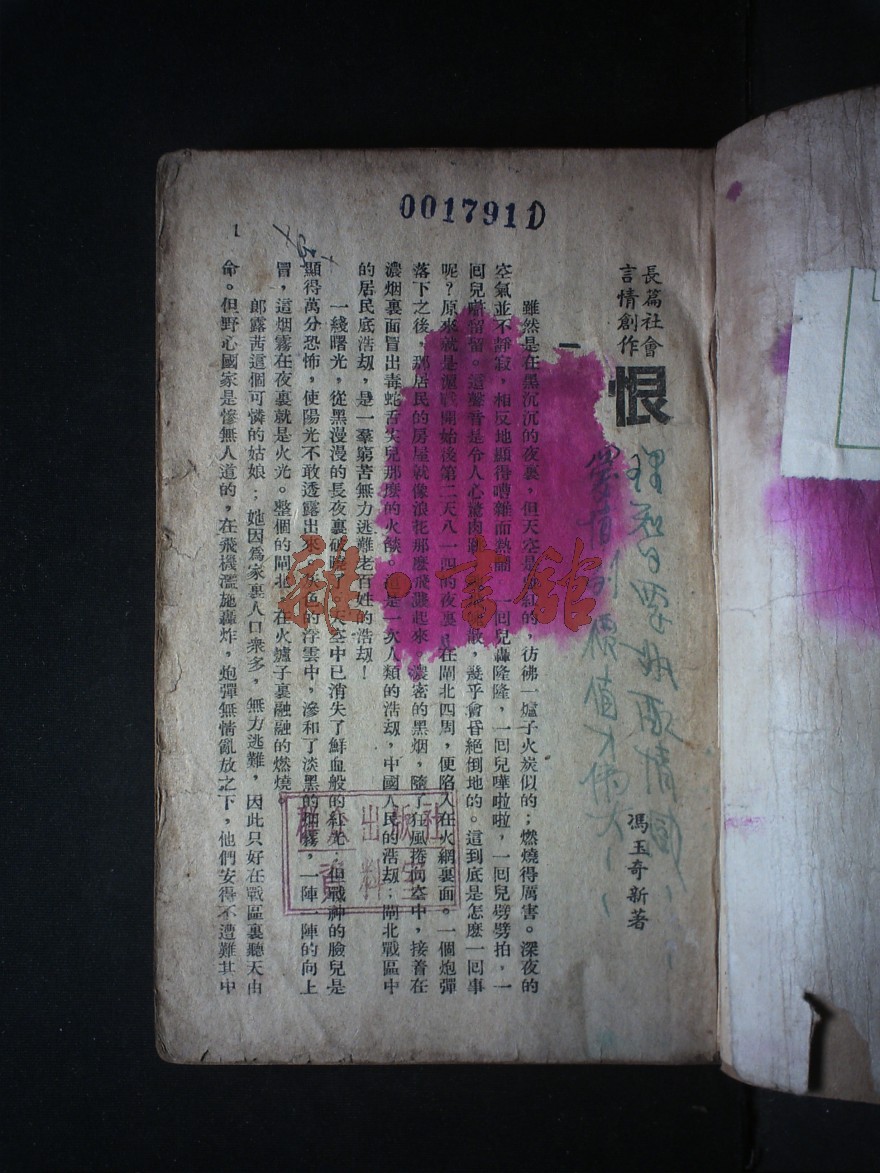 001791D
長篇社會
言情創作
恨
馮玉奇新著
一
雖然是在黑沉沉的夜裏,但天空是通紅的,彷彿一爐子火炭似的;燃燒得厲害。深夜的
空氣並不靜寂,相反地顯得嘈雜而熱鬧。一回兒轟隆隆,一回兒嘩啦啦,一回兒劈劈拍,一
回兒噼留留。這聲音是令人心驚肉跳,幾乎會昏絕倒地的。這到底是怎麽一回事
呢?原來就是滬戰開始後第二天八一四的夜裏,在閘北四周,便陷入在火網裏面。一個炮彈
落下之後,那居民的房屋就像浪花那麼飛濺起來,濃密的黑烟,隨了狂風捲向空中,接着在
濃烟裏面冒出毒蛇舌尖兒那麼的火燄。這是一次人類的浩刧,中國人民的浩刧;閘北戰區中
的居民底浩刧,是一羣窮苦無力逃難老百姓的浩刧!
一綫曙光,從黑漫漫的長夜裏破曉了。天空中已消失了鮮血般的紅光,但戰神的臉兒是
顯得萬分恐怖,使陽光不敢透露出來,灰色的浮雲中,滲和了淡黑的烟霧,一陣一陣的向上
冒,這烟霧在夜裏就是火光。整個的閘北,在火爐子裏融融的燃燒。
郎露茜這個可憐的姑娘;她因爲家裏人口衆多,無力逃難,因此只好在戰區裏聽天由
命。但野心國家是慘無人道的,在飛機濫施轟炸,炮彈無情亂放之下,他們安得不遭難其中
1
雜·書館
出版社
資料室